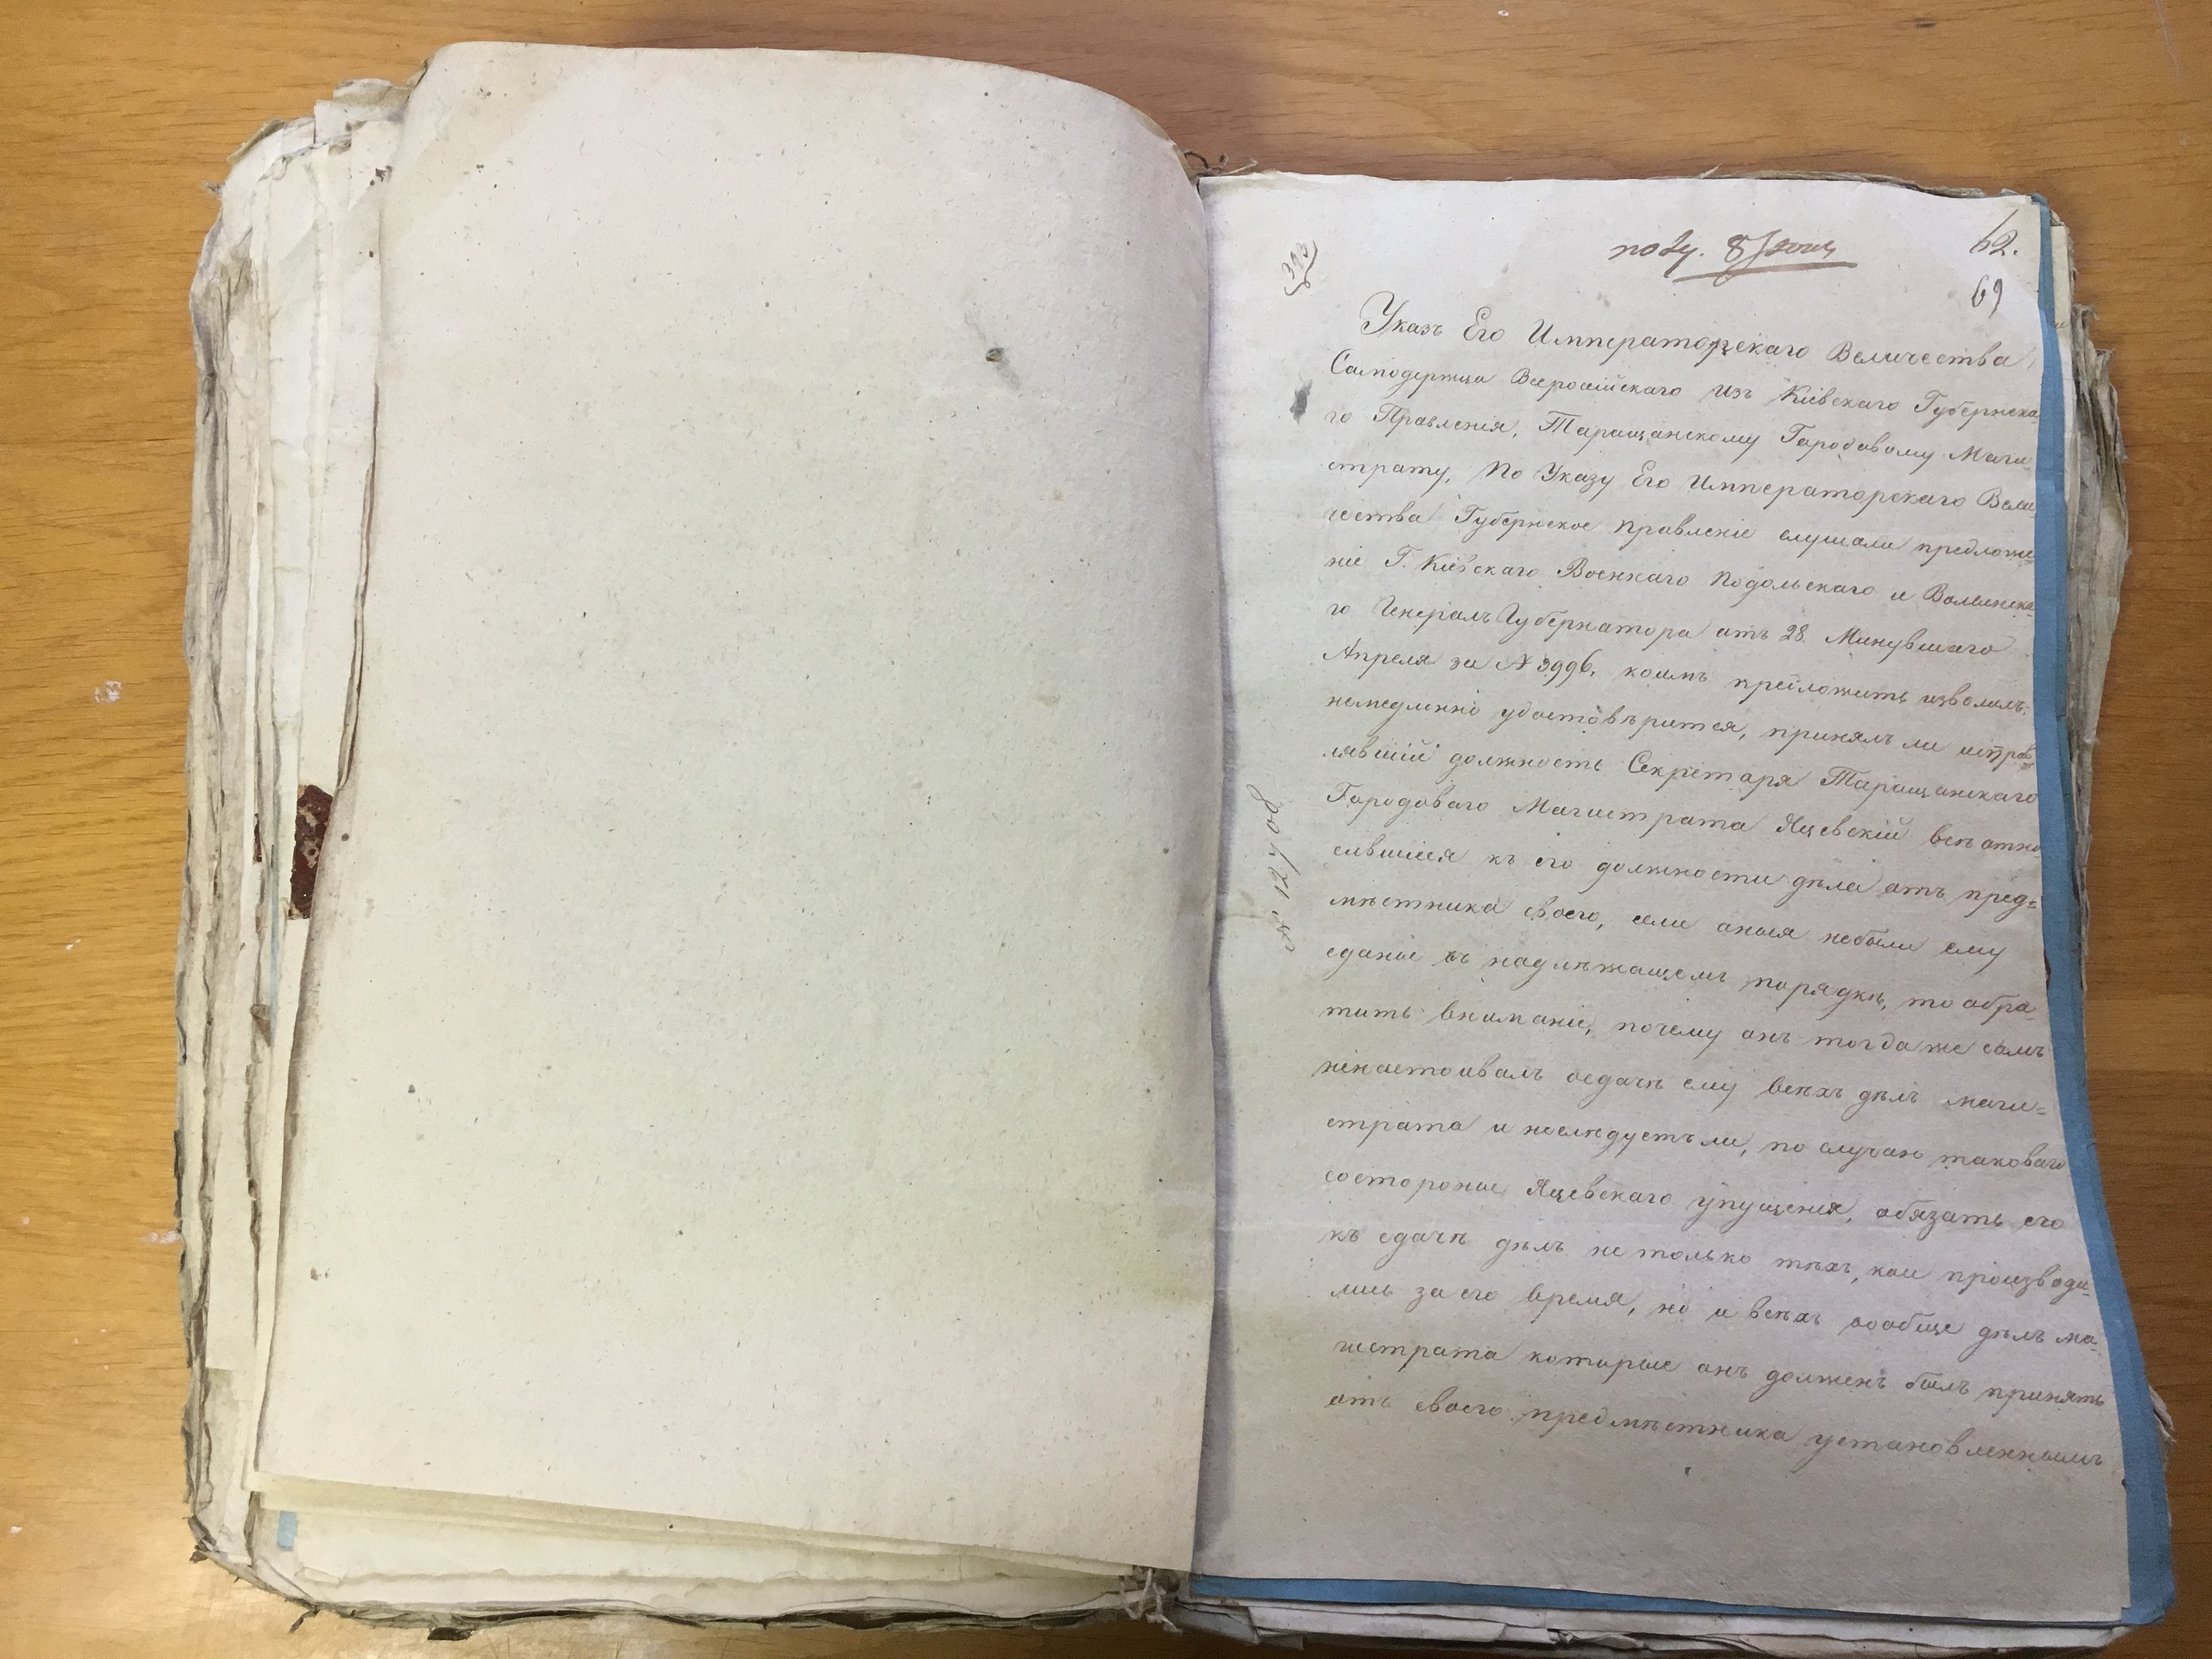 полу. 8 Юня
62.
69
593
Указъ Его Императорскаго Величества
Самодержца Всеросійскаго изъ Кіевскаго Губернска
го Правленія, Таращанскому Городовому Маги
страту. По Указу Его Императорскаго Вели
чества Губернское Правленіе слушали предложе
ніе Г. Кіевскаго Военнаго Подольскаго и Волынска
го Генералъ Губернатора отъ 28. Минувшаго
Апреля за № 3996. коимъ предложить изволилъ:
немедленно удостоверится, принялъ ли исправ
лявшій должность Секретаря Таращанскаго
Городоваго Магистрата Яцевскій всѣ отно
сившіеся къ его должности дѣла отъ пред=
мѣстника своего, если оныя небыли ему
сданы въ надлежащемъ порядкѣ, то обра
тить вниманіе, почему онъ тогда же самъ
ненастоивалъ осдачѣ ему всѣхъ дѣлъ маги=
страта и неслѣдуетъ ли, по случаю таковаго
состороны Яцевскаго упущенія, обязать его
къ сдачѣ дѣлъ не только тѣхъ, кои производи
лись за его время, но и всѣхъ вообще дѣлъ ма
гистрата которые онъ долженъ былъ принять
отъ своего предмѣстника установленнымъ
№ 12708